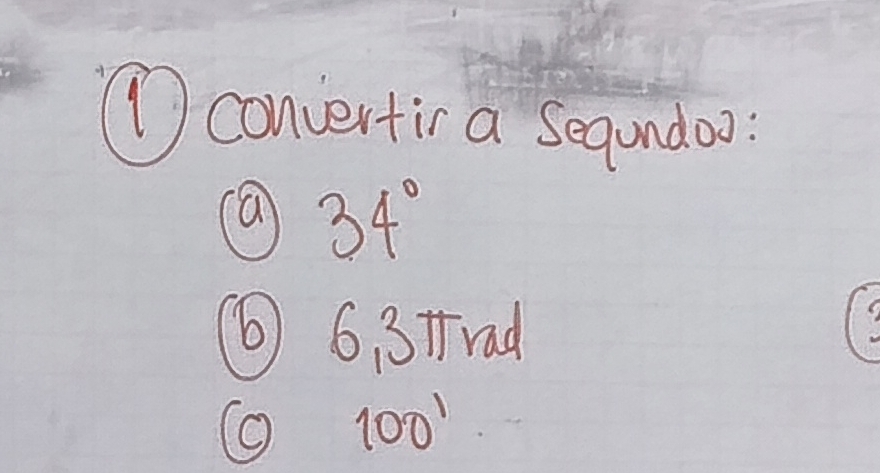 1 convertir a segundos:
a 34°
b 6,3 π rad
c 100'